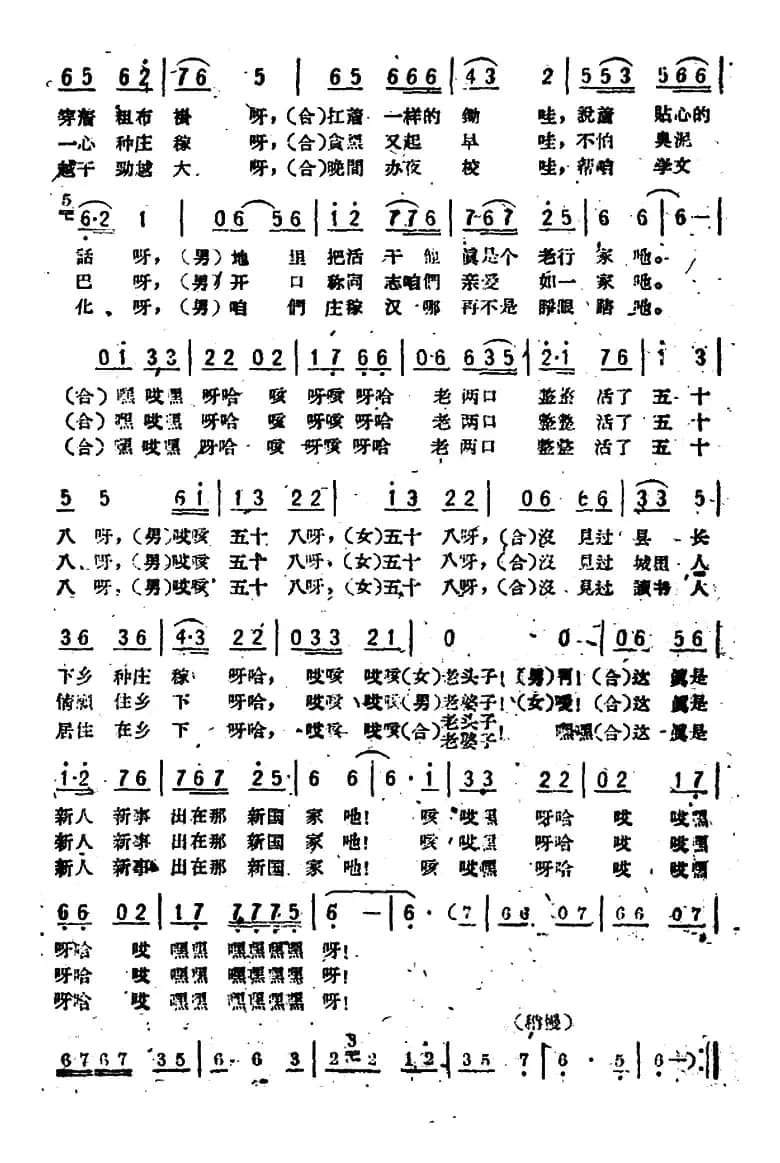 65 62 | 76 5 | 65 666 | 43 2 | 553 566 |
穿着 粗布 褂 呀，(合)扛着 一样的 锄 哇，說着 貼心的
一心 种庄 稼 呀，(合)贪黑 又起 早 哇，不怕 臭泥
越干 勁越 大 呀，(合)晚間 办夜 校 哇，帮咱 学文
6·2 1 | 06 56 | 12 776 | 767 25 | 6 6 | 6 — |
話 呀，(男)地 里 把活 干 真是个 老行 家 吔。
巴 呀，(男)开 口 称同 志咱們 亲爱 如一 家 吔。
化 呀，(男)咱 們 庄稼 汉 哪 再不是 睜眼 吔。
01 33 | 22 02 | 17 66 | 06 635 | 2·1 76 | 1 3 |
(合)嘿 哎嘿 呀哈 咳 呀咳 呀哈 老 两口 整整 活了 五 十
(合)嘿 哎嘿 呀哈 咳 呀咳 呀哈 老 两口 整整 活了 五 十
(合)嘿 哎嘿 呀哈 咳 呀咳 呀哈 老 两口 整整 活了 五 十
5 5 61 | 13 22 | 13 22 | 06 66 | 33 5 |
八 呀，(男)哎咳 五十 八呀，(女)五十 八呀，(合)沒 見过 县 长
八 呀，(男)哎咳 五十 八呀，(女)五十 八呀，(合)沒 見过 城里 人
八 呀，(男)哎咳 五十 八呀，(女)五十 八呀，(合)沒 見过 讀书 人
36 36 | 4·3 22 | 033 21 | 0 0 | 06 56 |
下乡 种庄 稼 呀哈， 哎咳 哎咳(女)老头子！(男)啊！(合)这 真是
住乡 下 呀哈， 哎咳 哎咳(男)老婆子！(女)嗳！(合)这 真是
居住 在乡 下 呀哈， 哎咳 哎咳(合)老头子老婆子！ 嘿嘿(合)这 真是
1·2 76 | 767 25 | 6 6 | 6·1 | 33 22 | 02 17 |
新人 新事 出在那 新国 家 吔！ 咳 哎嘿 呀哈 哎 哎嘿
新人 新事 出在那 新国 家 吔！ 咳 哎嘿 呀哈 哎 哎嘿
新人 新事 出在那 新国 家 吔！ 咳 哎嘿 呀哈 哎 哎嘿
66 02 | 17 7775 | 6 — | 6· (7 | 66 07 | 66 07 |
呀哈 哎 嘿嘿 嘿嘿嘿嘿 呀！
呀哈 哎 嘿嘿 嘿嘿嘿嘿 呀！
呀哈 哎 嘿嘿 嘿嘿嘿嘿 呀！
(稍慢)
6767 35 | 6 6 3 | 2·2 12 | 35 7 | 6 · 5 | 6 —) :||